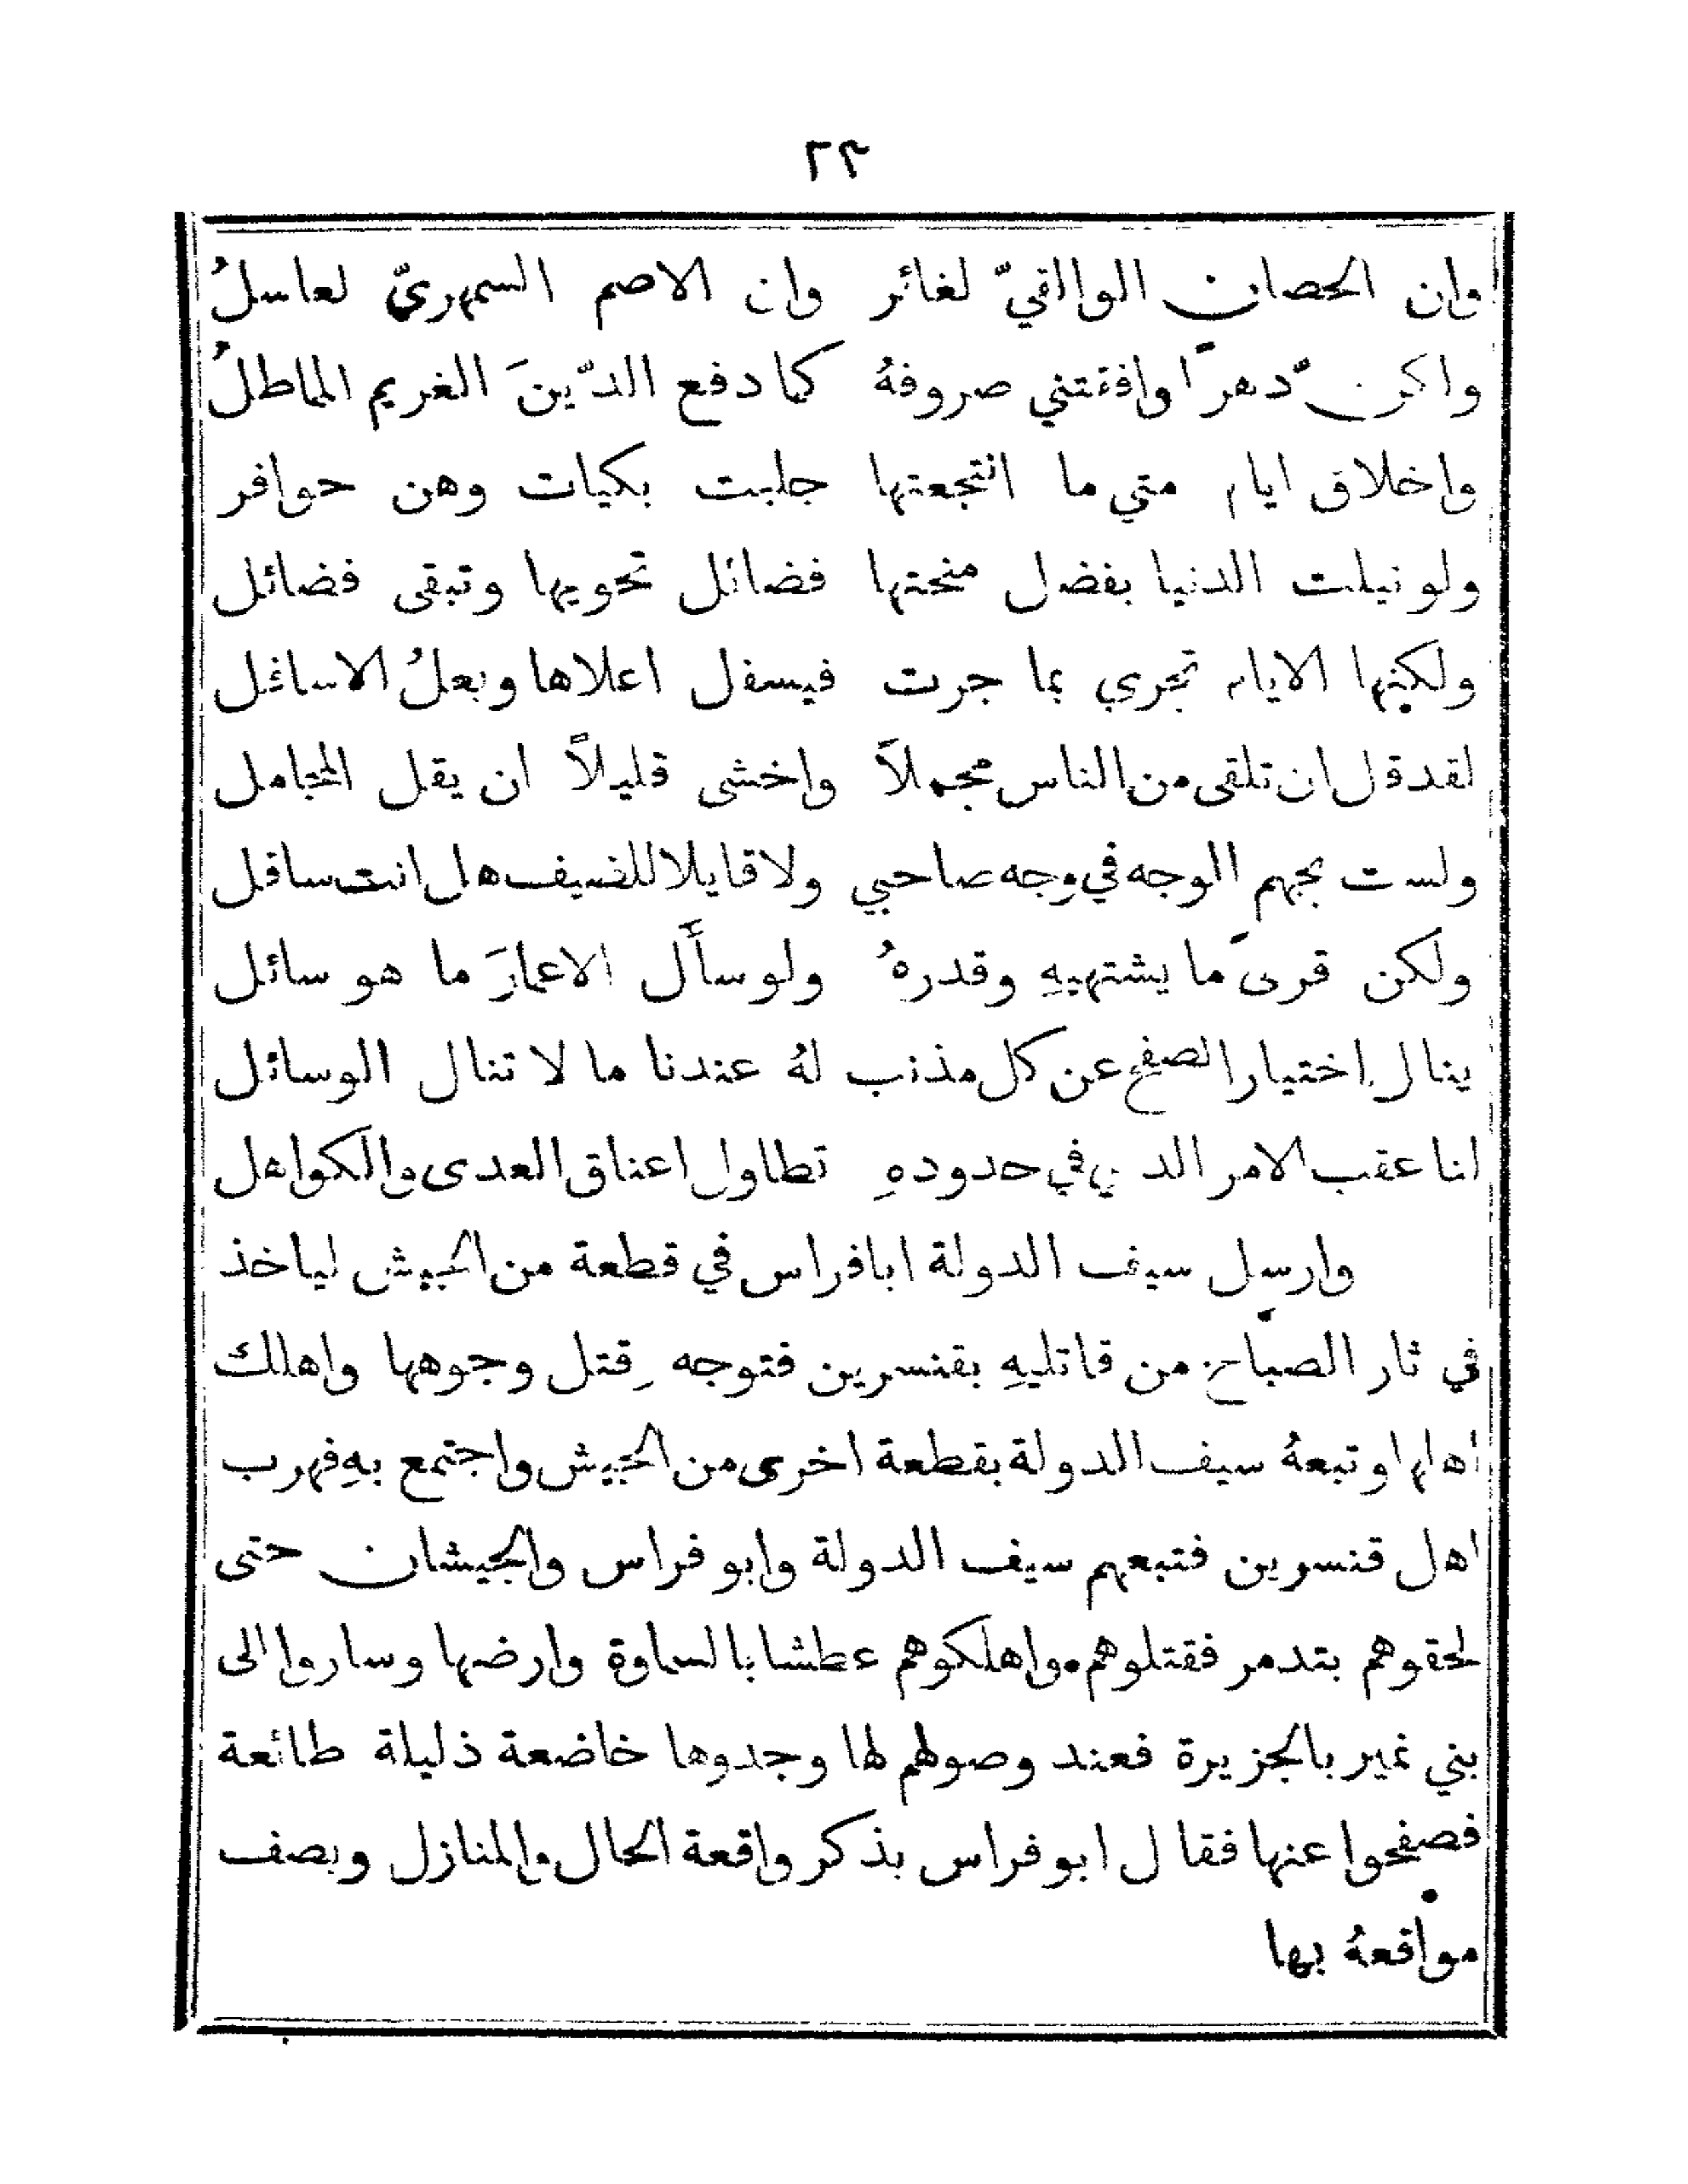 ٢٣
وان الحصان الوالقيّ لغائر وان الاصم السمهريّ لعاسلُ
ولكن دهرًا وافقتني صروفهُ كما دفع الدّينَ الغريم الماطلُ
واخلاق ايام متي ما انتجعتها جلبت بكيات وهن حوافر
ولو نيلت الدنيا بفضل منحتها فضائل تحويها وتبقى فضائل
ولكنها الايام تجري بما جرت فيسفل اعلاها ويعلُ الاسافل
لقد قل ان تلقى من الناس مجملاً واخشى قليلاً ان يقل المجامل
ولست بجهم الوجه في وجه صاحبي ولا قايلا للضيف هل انت سافل
ولكن قرى ما يشتهيهِ وقدرهُ ولو سأَل الاعمارَ ما هو سائل
ينال اختيار الصفح عن كل مذنب لهُ عندنا ما لا تنال الوسائل
انا عقب الامر الدي في حدودهِ تطاول اعناق العدى والكواهل
وارسل سيف الدولة ابا فراس في قطعة من الجيش لياخذ
في ثار الصباح من قاتليهِ بقنسرين فتوجه وقتل وجوهها واهلك
اهلها وتبعهُ سيف الدولة بقطعة اخرى من الجيش واجتمع بهِ فهرب
اهل قنسرين فتبعهم سيف الدولة وابو فراس والجيشان حتى
لحقوهم بتدمر فقتلوهم واهلكوهم عطشا بالسماوة وارضها وساروا الى
بني نمير بالجزيرة فعند وصولهم لها وجدوها خاضعة ذليلة طائعة
فصفحوا عنها فقال ابو فراس بذكر واقعة الحال والمنازل ويصف
مواقعهُ بها